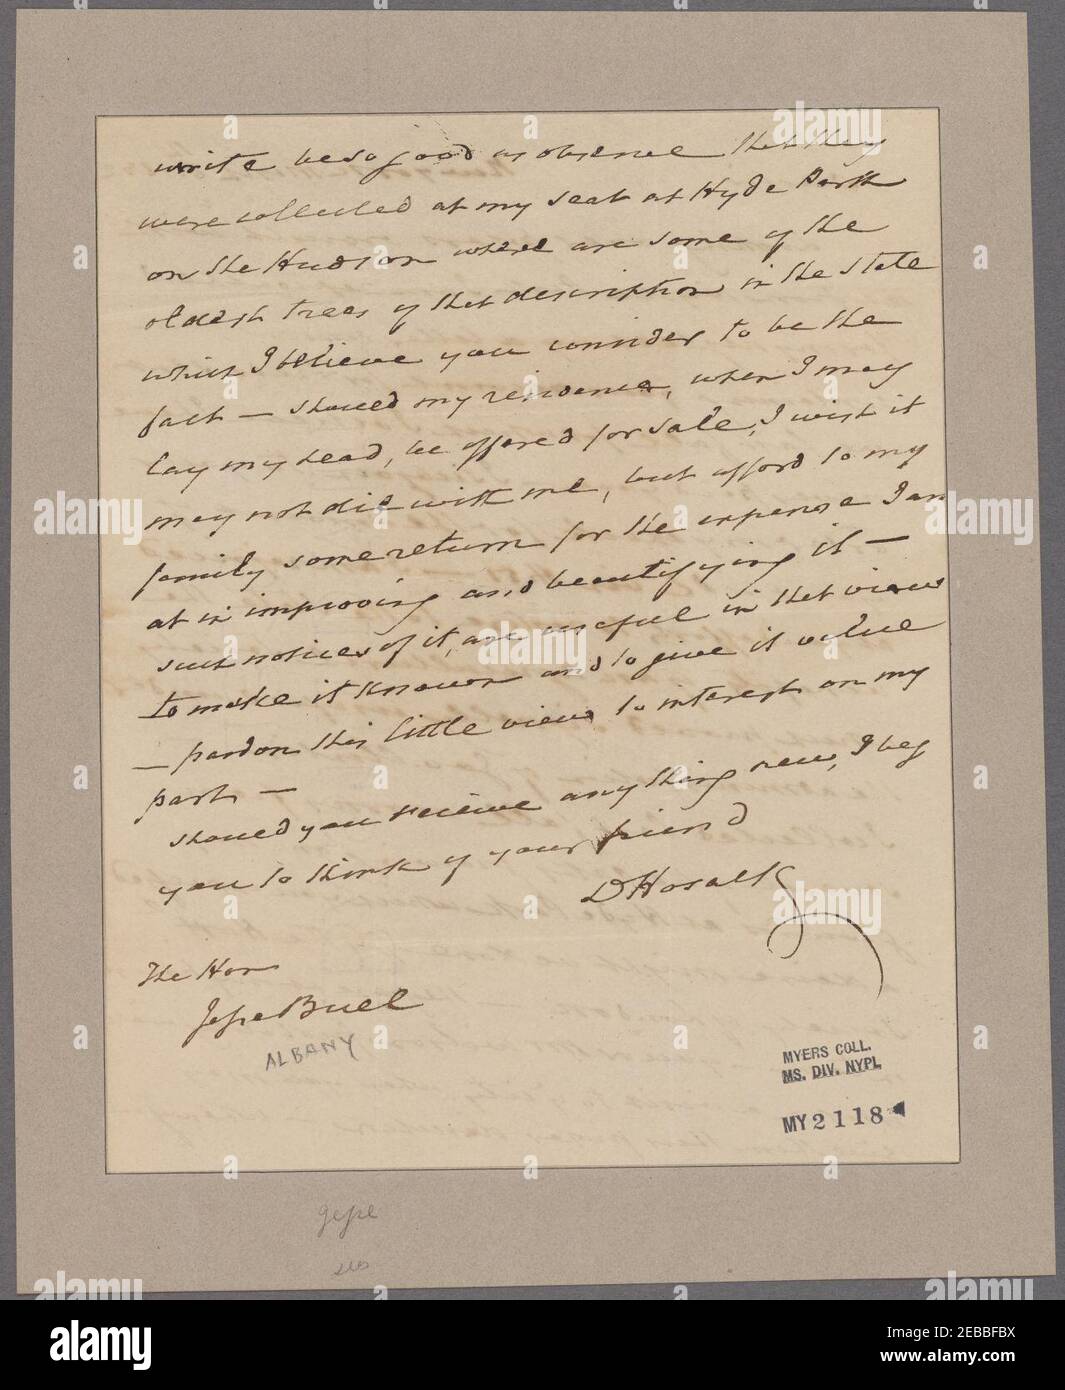 write be so good as observe that they
were collected at my seat at Hyde Park
on the Hudson where are some of the
oldest trees of that description in the state
which I believe you consider to be the
fact — should my residence, when I may
lay my head, be offered for sale, I wish it
may not die with me, but afford to my
family some return for the expense I am
at in improving and beautifying it —
such notices of it, are useful in that view
to make it known and to give it value
— pardon this little view to interest on my
part —
should you receive any thing new, I beg
you to think of your friend
D Hosack
The Hon
Jesse Buel
ALBANY
MYERS COLL.
MS. DIV. NYPL
MY 2118
Jesse
alamy
Image ID: 2EBBFBX
www.alamy.com